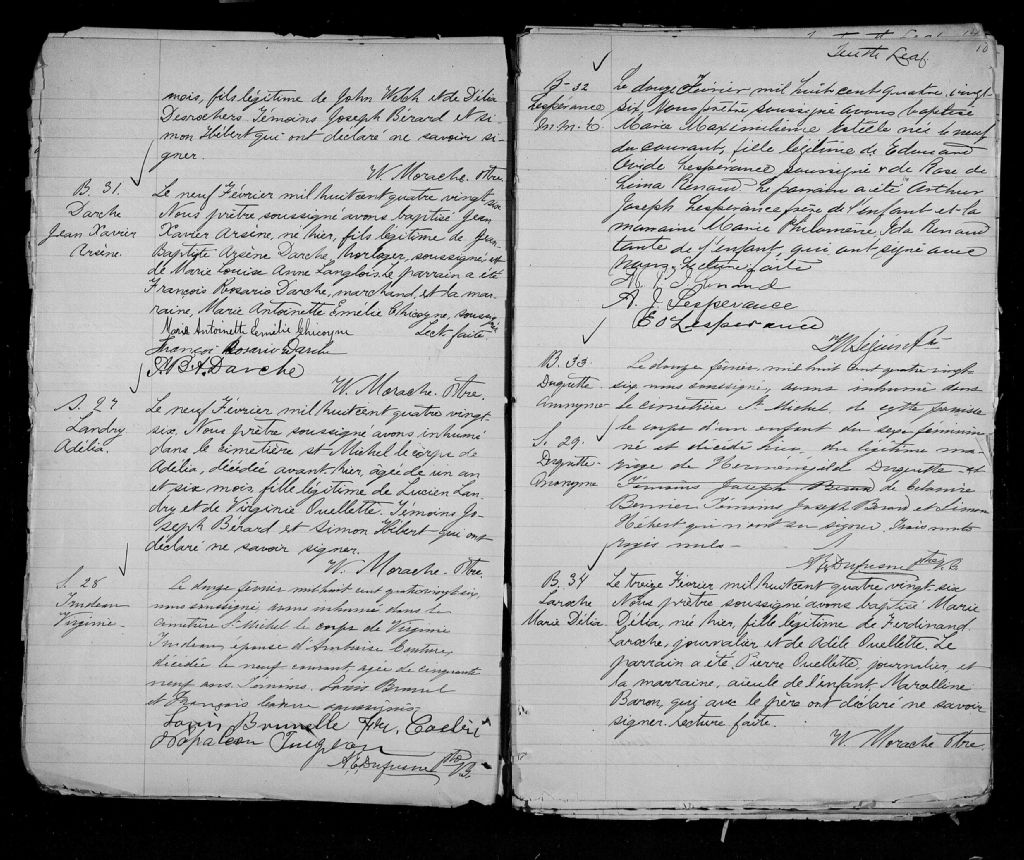 mois, fils légitime de John Welch et de Délia
Desrochers. Témoins Joseph Bérard et Si-
mon Hébert qui ont déclaré ne savoir si-
gner.
W. Morache Ptre.
B. 31.
Darche
Jean Xavier
Arsène.
Le neuf Février mil huit cent quatre vingt six
Nous prêtre soussigné avons baptisé Jean
Xavier Arsène, né hier, fils légitime de Jean
Baptiste Arsène Darche, horloger, soussigné et
de Marie Louise Anne Langlois. Le parrain a été
François Rosario Darche, marchand, et la mar-
raine, Marie Antoinette Emélie Chicoyne, soussignés
Lect. faite.
Marie Antoinette Emélie Chicoyne
François Rosario Darche
J.B.A. Darche
W. Morache. Ptre.
S. 27
Landry
Adélia.
Le neuf Février mil huit cent quatre vingt-
six. Nous prêtre soussigné avons inhumé
dans le cimetière St Michel le corps de
Adélia, décédée avant-hier, âgée de un an
et six mois, fille légitime de Lucien Lan-
dry et de Virginie Ouellette. Témoins Jo-
seph Bérard et Simon Hébert qui ont
déclaré ne savoir signer.
W. Morache. Ptre.
S. 28
Virginie.
Le douze février mil huit cent quatre vingt six,
nous soussigné avons inhumé dans le
cimetière St Michel le corps de Virginie
épouse d'Ambroise Couture,
décédée le neuf courant agée de cinquante
neuf ans. Témoins. Louis Brunel
et François soussignés
Louis Brunelle
Napoléon
A. E. Dufresne Ptre
10
Tenth Leaf
B-32
Lesperance
M. M. E.
Le douze Février mil huit cent quatre vingt-
six Nous prêtre soussigné avons baptisé
Marie Maximilienne Estelle née le neuf
du courant, fille légitime de Edouard
Ovide Lespérance soussigné & de Rose de
Lima Renaud. Le parrain a été Arthur
Joseph Lespérance frère de l'enfant et la
marraine Marie Philomène Ida Renaud
tante de l'enfant, qui ont signé avec
nous. Lecture faite
A. J. Lesperance
E O Lesperance
B. 33
Duquette
Anonyme
S. 29.
Duquette
Anonyme
Le douze février, mil huit cent quatre vingt-
six nous soussigné, avons inhumé dans
le cimetière St Michel, de cette paroisse
le corps d'un enfant du sexe féminin
né et décédé hier, du légitime ma-
riage de Herménégilde Duquette et
Témoins Joseph Bérard de
Témoins Joseph Bérard et Simon
Hébert qui n'ont su signer. Trois mots
rayés nuls—
A. E. Dufresne Ptre
B. 34
Laroche
Marie Délia
Le treize Février mil huit cent quatre vingt-six
Nous prêtre soussigné avons baptisé Marie
Délia, née hier, fille légitime de Ferdinand
Laroche, journalier et de Adèle Ouellette. Le
parrain a été, Pierre Ouellette, journalier, et
la marraine, aieule de l'enfant Marcelline
Baron, qui, avec le père ont déclaré ne savoir
signer. Lecture faite.
W. Morache Ptre.